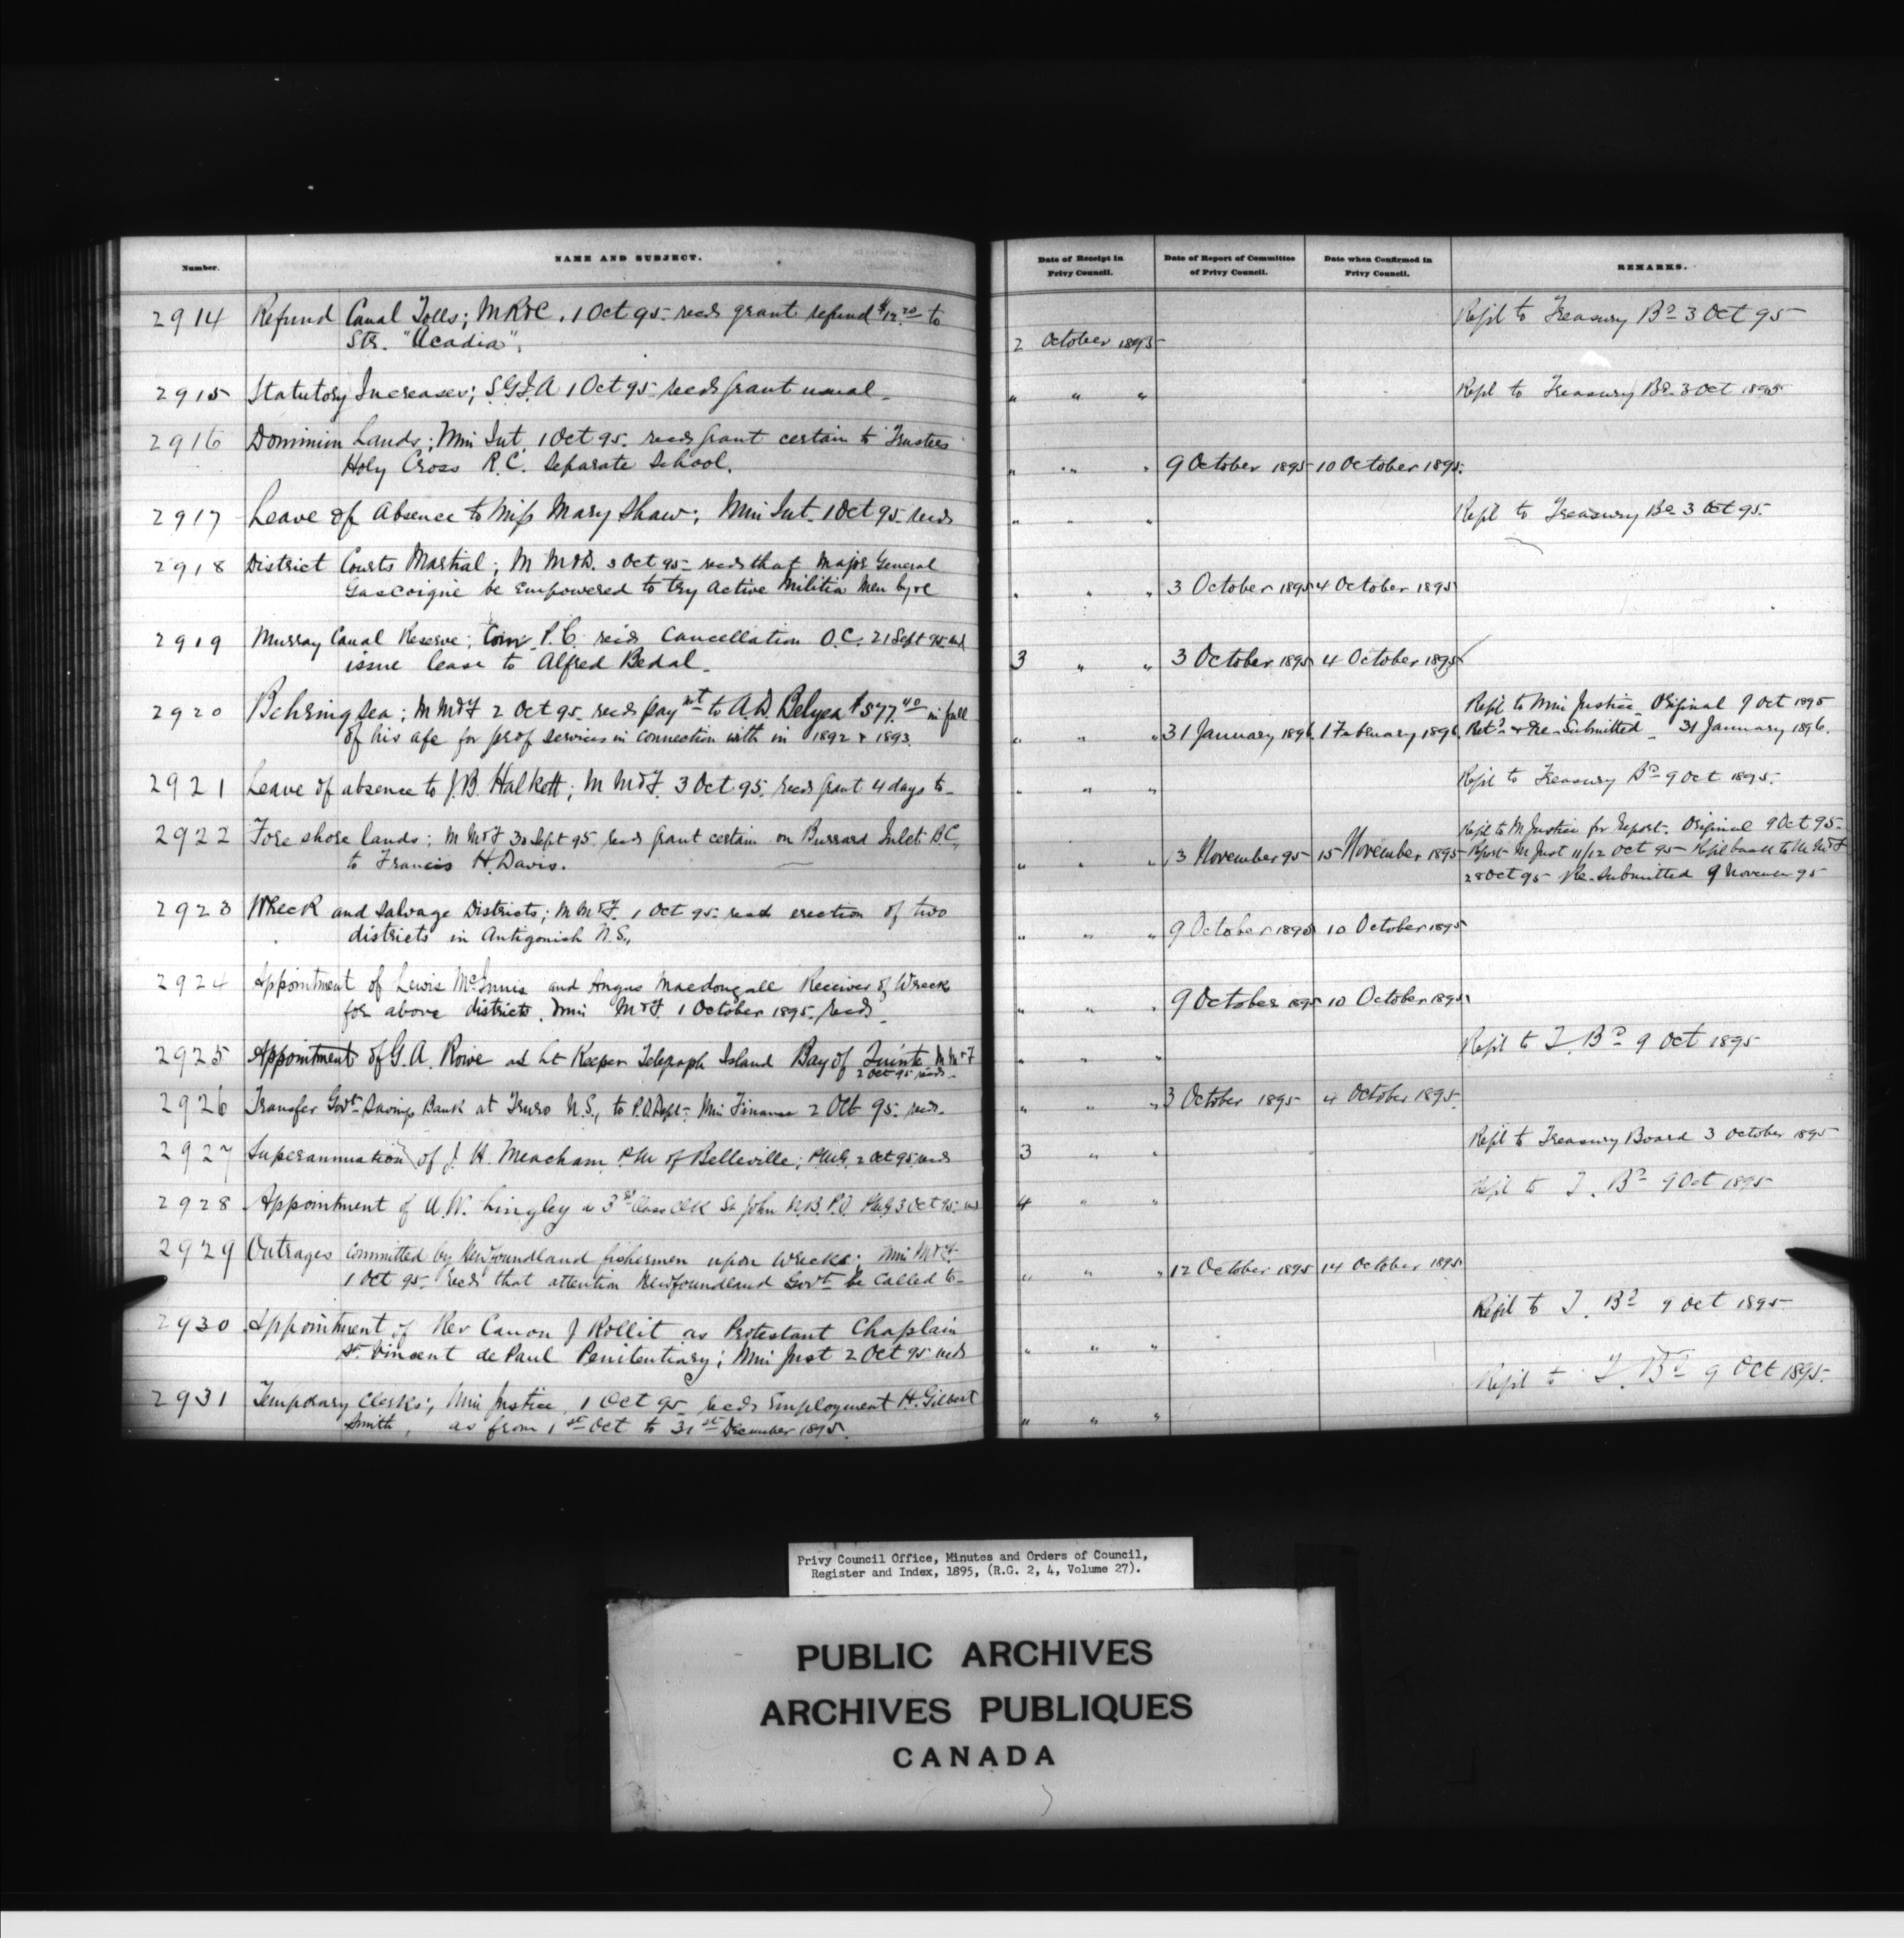 Number.
NAME AND SUBJECT.
Date of Receipt in Privy Council.
Date of Report of Committee of Privy Council.
Date when Confirmed in Privy Council.
REMARKS.
2914 Refund Canal Tolls; M R & C. 1 Oct 95 recds grant refund $12.20 to Refd to Treasury Bd 3 Oct 95
Str. "Acadia". 2 October 1895
2915 Statutory Increases; S.G.I.A 1 Oct 95 recds grant usual " " " Refd to Treasury Bd 3 Oct 1895
2916 Dominion Lands; Min Int 1 Oct 95 recds grant certain to Trustees
Holy Cross R.C. Separate School. " " " 9 October 1895 10 October 1895
2917 Leave of Absence to Miss Mary Shaw; Min Int. 1 Oct 95 recds " " " Refd to Treasury Bd 3 Oct 95
2918 District Courts Martial; M M & D. 3 Oct 95 recds that Major General
Gascoigne be empowered to try active Militia Men by &c " " " 3 October 1895 4 October 1895
2919 Murray Canal Reserve; Com P.C. recds Cancellation O.C. 21 Sept 95 and
issue lease to Alfred Bedal 3 " " 3 October 1895 4 October 1895
2920 Behring Sea; M M & F 2 Oct 95 recds paynt to A.D. Belyea $577.40 in full Refd to Min Justice Original 9 Oct 1895
of his a/c for prof services in connection with in 1892 & 1893. " " " 31 January 1896 1 February 1896 Retd & Re-Submitted 31 January 1896.
2921 Leave of absence to J.B. Halkett; M M & F. 3 Oct 95 recds grant 4 days to " " " Refd to Treasury Bd 9 Oct 1895
2922 Fore shore lands; M M & F 30 Sept 95 recds grant certain on Burrard Inlet B.C., Refd to M Justice for Report. Original 9 Oct 95
to Francis H. Davis. " " " 13 November 95 15 November 1895 Report M Just 11/12 Oct 95 Refd back to M M & F
28 Oct 95 Re-submitted 9 November 95
2923 Wreck and Salvage Districts; M M & F. 1 Oct 95 recds erection of two
districts in Antigonish N.S., " " " 9 October 1895 10 October 1895
2924 Appointment of Lewis McInnis and Angus Macdougall Receiver of Wrecks
for above districts. Min M & F. 1 October 1895 recds " " " 9 October 1895 10 October 1895
2925 Appointment of G.A. Rowe as Lt Keeper Telegraph Island Bay of Quinte M M & F " " " Refd to T. Bd 9 Oct 1895
2 Oct 95 recds
2926 Transfer Govt Savings Bank at Truro N.S., to P.O. Dept Min Finance 2 Oct 95 recds " " " 3 October 1895 4 October 1895
2927 Superannuation of J. H. Meacham P.M of Belleville; PMG. 2 Oct 95 recds 3 " " Refd to Treasury Board 3 October 1895
2928 Appointment of U.W. Lingley a 3rd Class Clk St John N.B. P.O PMG 3 Oct 95 recds 4 " " Refd to T. Bd 9 Oct 1895
2929 Outrages committed by Newfoundland fishermen upon Wrecks; Min M & F
1 Oct 95 recds that attention Newfoundland Govt be called to " " " 12 October 1895 14 October 1895
2930 Appointment of Rev Canon J Rollit as Protestant Chaplain Refd to T. Bd 9 Oct 1895
St. Vincent de Paul Penitentiary; Min Just 2 Oct 95 recds " " "
2931 Temporary Clerks; Min Justice 1 Oct 95 recds Employment H. Gilbert Refd to T. Bd 9 Oct 1895
Smith, as from 1st Oct to 31st December 1895. " " "
Privy Council Office, Minutes and Orders of Council,
Register and Index, 1895, (R.G. 2, 4, Volume 27).
PUBLIC ARCHIVES
ARCHIVES PUBLIQUES
CANADA